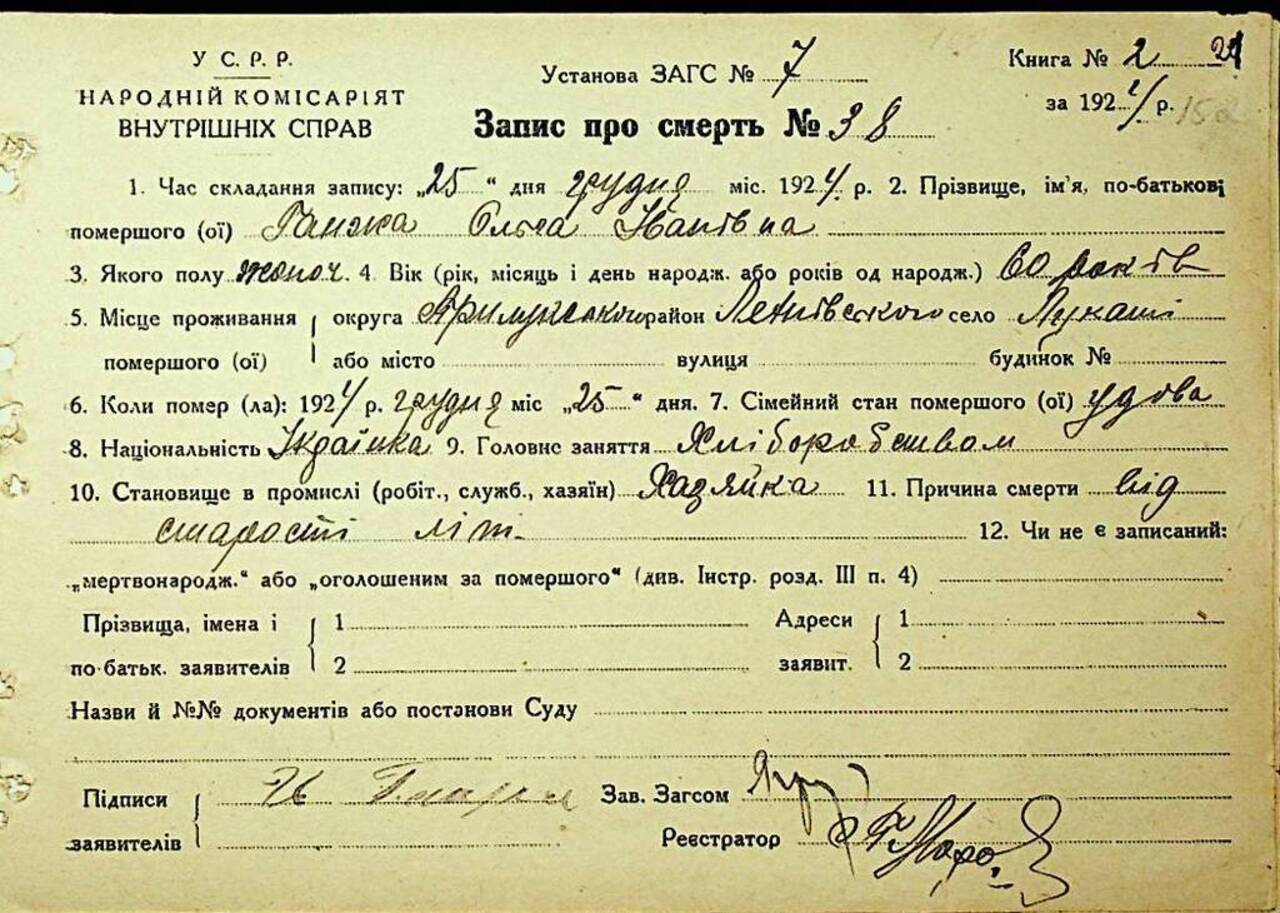 У С. Р. Р.
НАРОДНІЙ КОМІСАРІЯТ
ВНУТРІШНІХ СПРАВ
Установа ЗАГС № 7
Запис про смерть № 38
Книга № 2
за 1924 р. 152
1. Час складання запису: „25“ дня грудня міс. 1924 р. 2. Прізвище, ім'я, по-батькові
помершого (ої) Ганжа Ольга Іванівна
3. Якого полу жоноч. 4. Вік (рік, місяць і день народж. або років од народж.) 60 років
5. Місце проживання округа Прилуцького район село
помершого (ої) або місто вулиця будинок №
6. Коли помер (ла): 1924 р. грудня міс „25“ дня. 7. Сімейний стан помершого (ої) удова
8. Національність Українка 9. Головне заняття Хліборобством
10. Становище в промислі (робіт., служб., хазяїн) Хазяйка 11. Причина смерти від
старості літ. 12. Чи не є записаний:
„мертвонародж.“ або „оголошеним за помершого“ (див. Інстр. розд. III п. 4)
Прізвища, імена і 1 Адреси 1
по батьк. заявителів 2 заявит. 2
Назви й №№ документів або постанови Суду
Підписи Зав. Загсом
заявителів Реєстратор